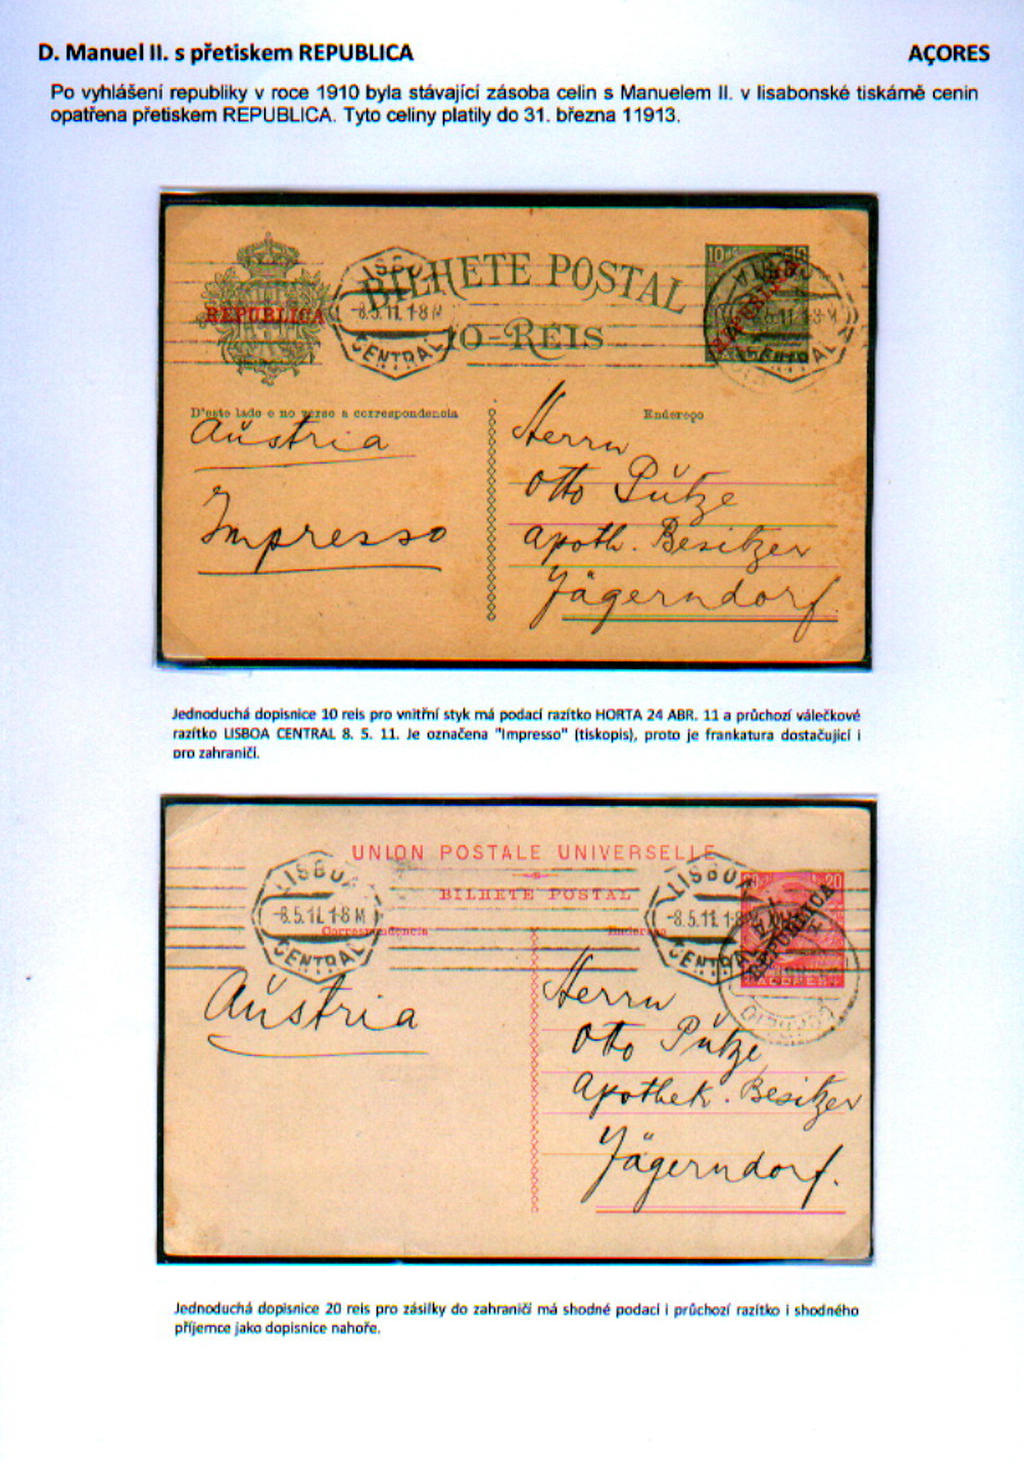 D. Manuel II. s přetiskem REPUBLICA
AÇORES
Po vyhlášení republiky v roce 1910 byla stávající zásoba celin s Manuelem II. v lisabonské tiskárně cenin
opatřena přetiskem REPUBLICA. Tyto celiny platily do 31. března 11913.
BILHETE POSTAL
10-REIS
10
REPUBLICA
REPUBLICA
LISBOA
-8.5.11.1-8 M
CENTRAL
D'este lado e no verso a correspondencia
Endereço
Austria
Impresso
Herrn
Otto Pütze
Apoth. Besitzer
Jägerndorf
Jednoduchá dopisnice 10 reis pro vnitřní styk má podací razítko HORTA 24 ABR. 11 a průchozí válečkové
razítko LISBOA CENTRAL 8. 5. 11. Je označena "Impresso" (tiskopis), proto je frankatura dostačující i
pro zahraničí.
UNION POSTALE UNIVERSELLE
BILHETE POSTAL
20
REPUBLICA
AÇORES
LISBOA
-8.5.11.1-8 M
CENTRAL
LISBOA
-8.5.11.1-8
CENTRAL
Correspondencia
Endereço
Austria
Herrn
Otto Pütze
Apothek. Besitzer
Jägerndorf.
Jednoduchá dopisnice 20 reis pro zásilky do zahraničí má shodné podací i průchozí razítko i shodného
příjemce jako dopisnice nahoře.